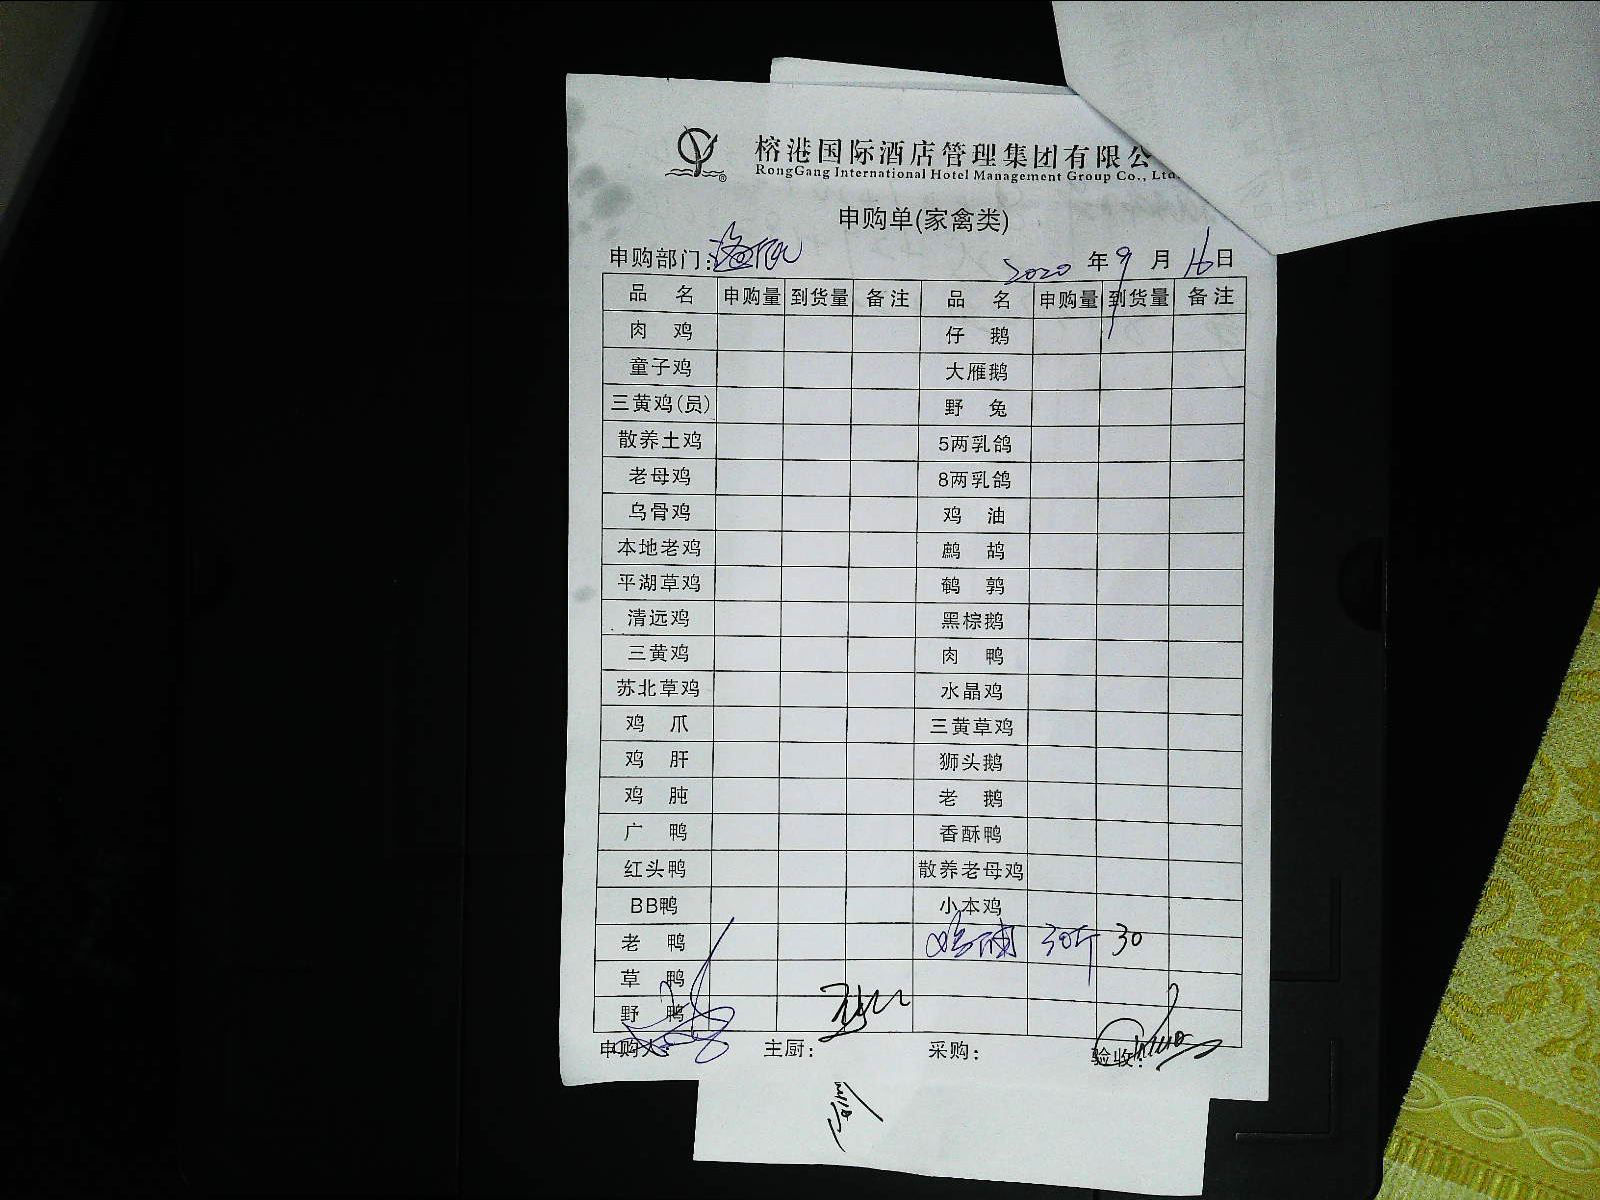 榕港国际酒店管理集团有限公
RongGang International Hotel Management Group Co., Ltd.
申购单(家禽类)
申购部门: 2020 年 9 月 16 日
品 名 申购量 到货量 备注 品 名 申购量 到货量 备注
肉 鸡 仔 鹅
童子鸡 大雁鹅
三黄鸡(员) 野 兔
散养土鸡 5两乳鸽
老母鸡 8两乳鸽
乌骨鸡 鸡 油
本地老鸡 鹧 鸪
平湖草鸡 鹌 鹑
清远鸡 黑棕鹅
三黄鸡 肉 鸭
苏北草鸡 水晶鸡
鸡 爪 三黄草鸡
鸡 肝 狮头鹅
鸡 肫 老 鹅
广 鸭 香酥鸭
红头鸭 散养老母鸡
BB鸭 小本鸡
老 鸭 鸡脯 30斤 30
草 鸭
野 鸭
申购人: 主厨: 采购: 验收: